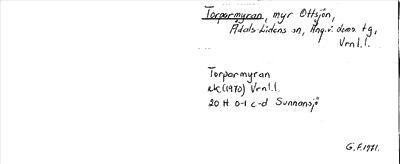 Torparmyran, myr Ottsjön,
Ådals-Lidens sn, Ång. v. doms. tg,
Vrnl.l.
Torparmyran
ek (1970) Vrnl.l.
20 H 0-1 c-d Sunnansjö
G.F. 1971.